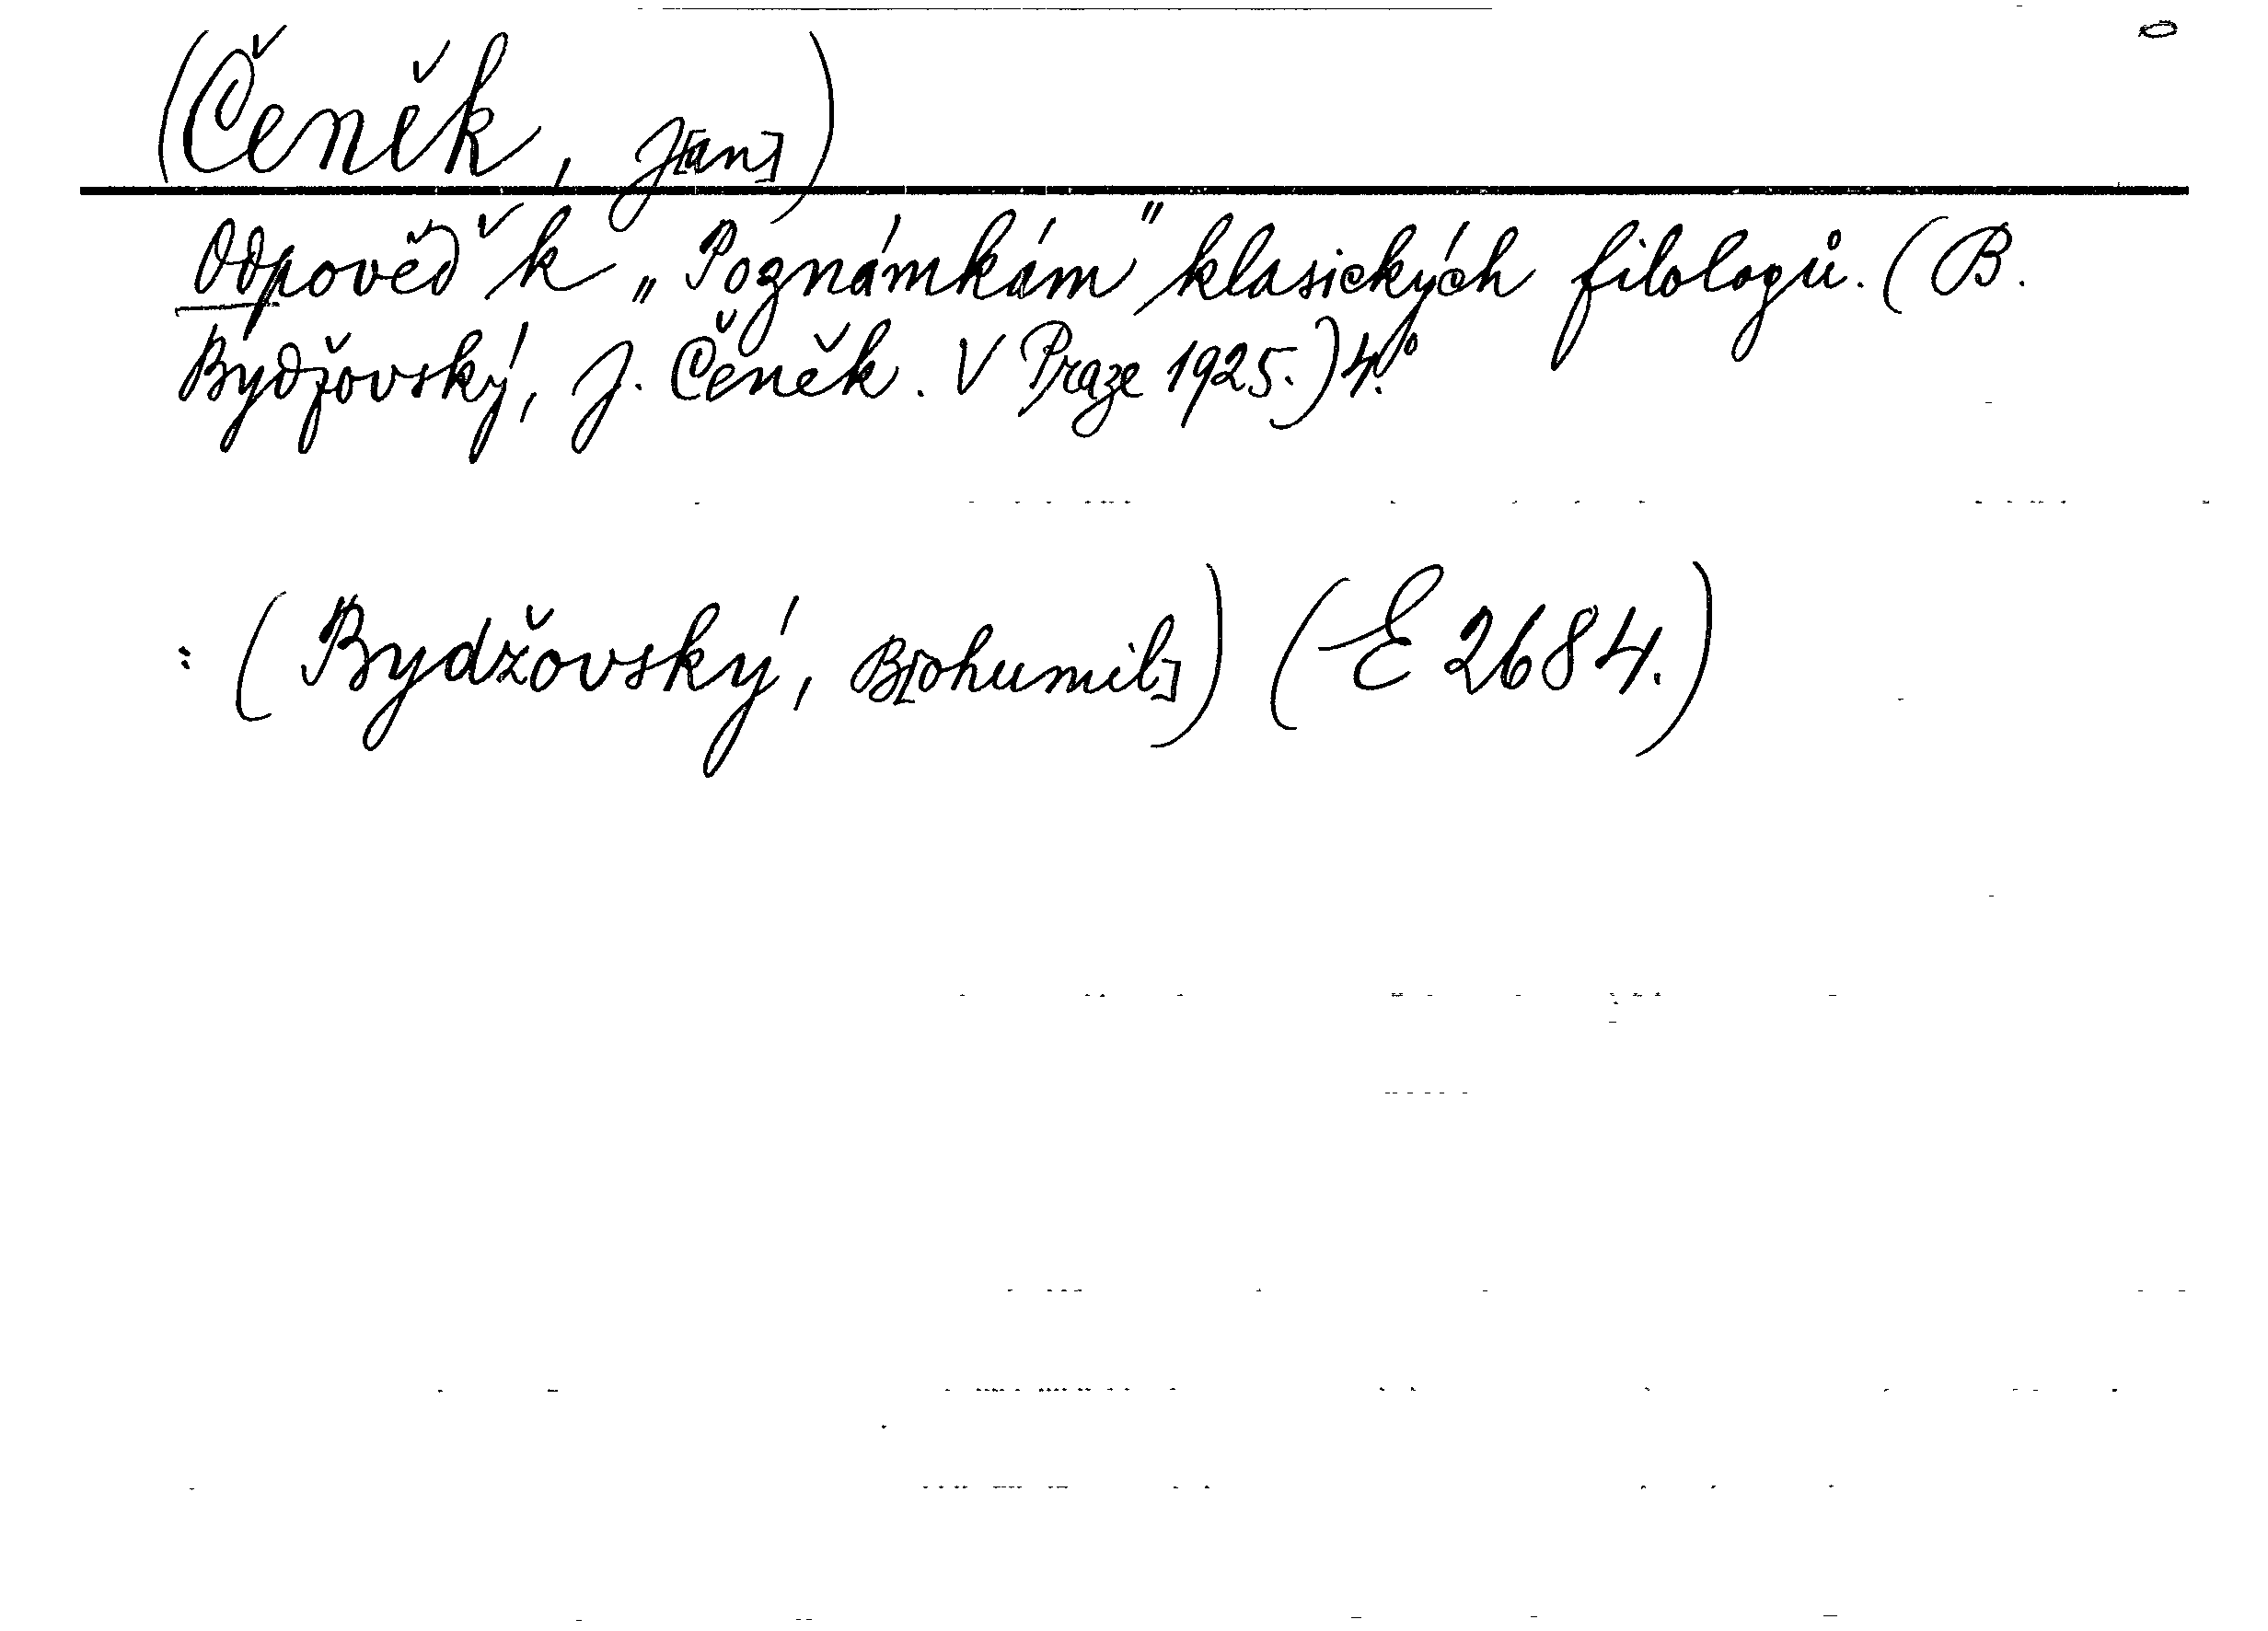 (Čeněk, J[an])
Odpověď k „Poznámkám" klasických filologů. (B.
Bydžovský, J. Čeněk. V Praze 1925.) 4.°
: (Bydžovský, B[ohumil]) (E 2684.)